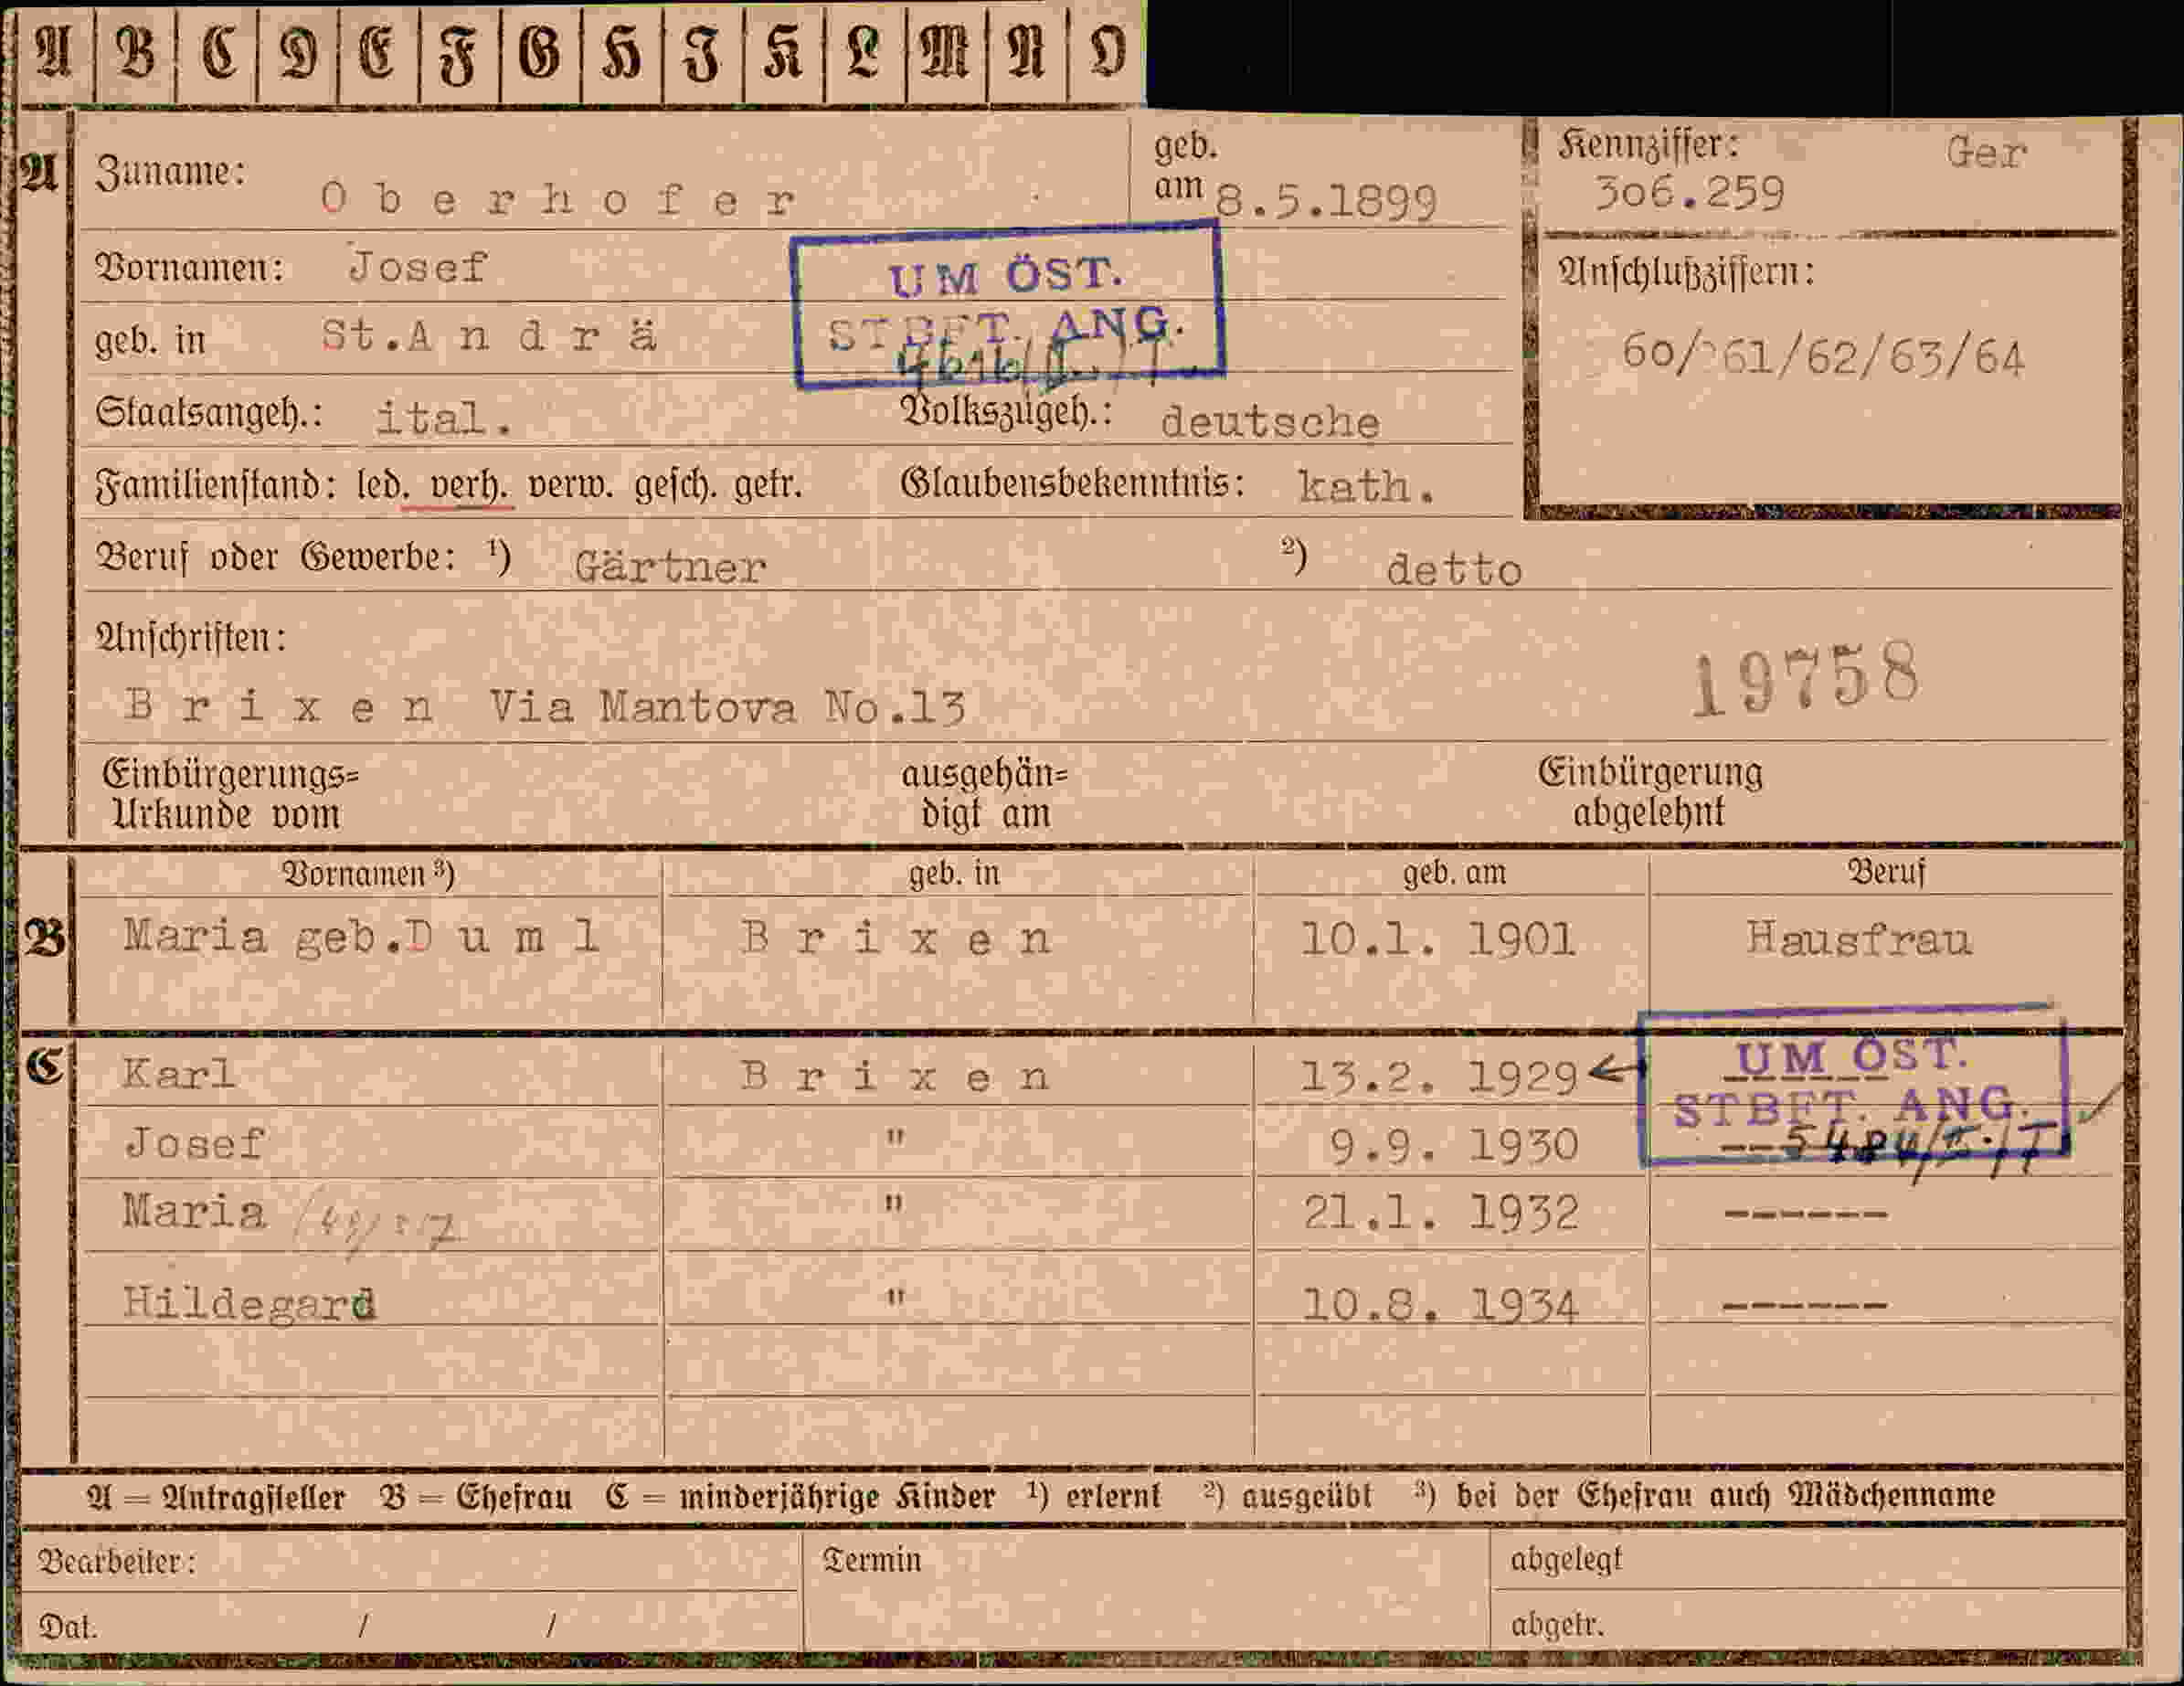 A B C D E F G H I K L M N O
A Zuname: Oberhofer geb. am 8.5.1899
Kennziffer: Ger
306.259
Vornamen: Josef
UM ÖST.
STBFT. ANG.
Anschlußziffern:
60/61/62/63/64
geb. in St.Andrä
Staatsangeh.: ital. Volkszugeh.: deutsche
Familienstand: led. verh. verw. gesch. getr. Glaubensbekenntnis: kath.
Beruf oder Gewerbe: ¹) Gärtner ²) detto
Anschriften:
19758
Brixen Via Mantova No.13
Einbürgerungs= ausgehän= Einbürgerung
Urkunde vom digt am abgelehnt
Vornamen ³) geb. in geb. am Beruf
B Maria geb.Duml Brixen 10.1. 1901 Hausfrau
C Karl Brixen 13.2. 1929 ------
UM ÖST.
STBFT. ANG.
Josef " 9.9. 1930
5484/II./T
Maria " 21.1. 1932 ------
Hildegard " 10.8. 1934 ------
A = Antragsteller B = Ehefrau C = minderjährige Kinder ¹) erlernt ²) ausgeübt ³) bei der Ehefrau auch Mädchenname
Bearbeiter: Termin abgelegt
Dat. / / abgetr.